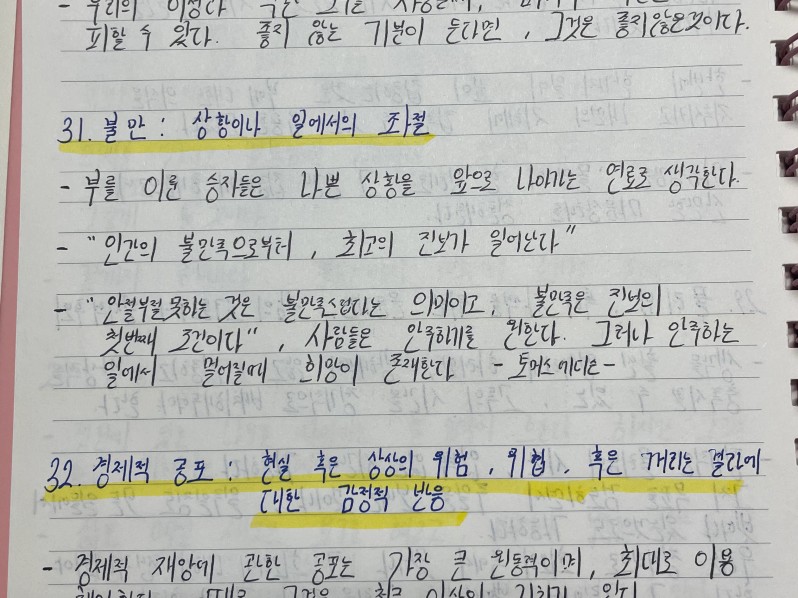 - 우리의 이성다
피할 수 있다. 좋지 않은 기분이 든다면, 그것은 좋지않은것이다.
31. 불만 : 상황이나 일에서의 좌절
- 부를 이룬 승자들은 나쁜 상황을 앞으로 나아가는 연료로 생각한다.
- "인간의 불만족으로부터, 최고의 진보가 일어난다"
- "안절부절 못하는 것은 불만족스럽다는 의미이고, 불만족은 진보의
첫번째 조건이다", 사람들은 안주하기를 원한다. 그러나 안주하는
일에서 멀어질때 희망이 존재한다 - 토머스에디슨 -
32. 경제적 공포 : 현실 혹은 상상의 위험, 위협, 혹은 꺼리는 결과에
대한 감정적 반응
- 경제적 재앙에 관한 공포는 가장 큰 원동력이며, 최대로 이용